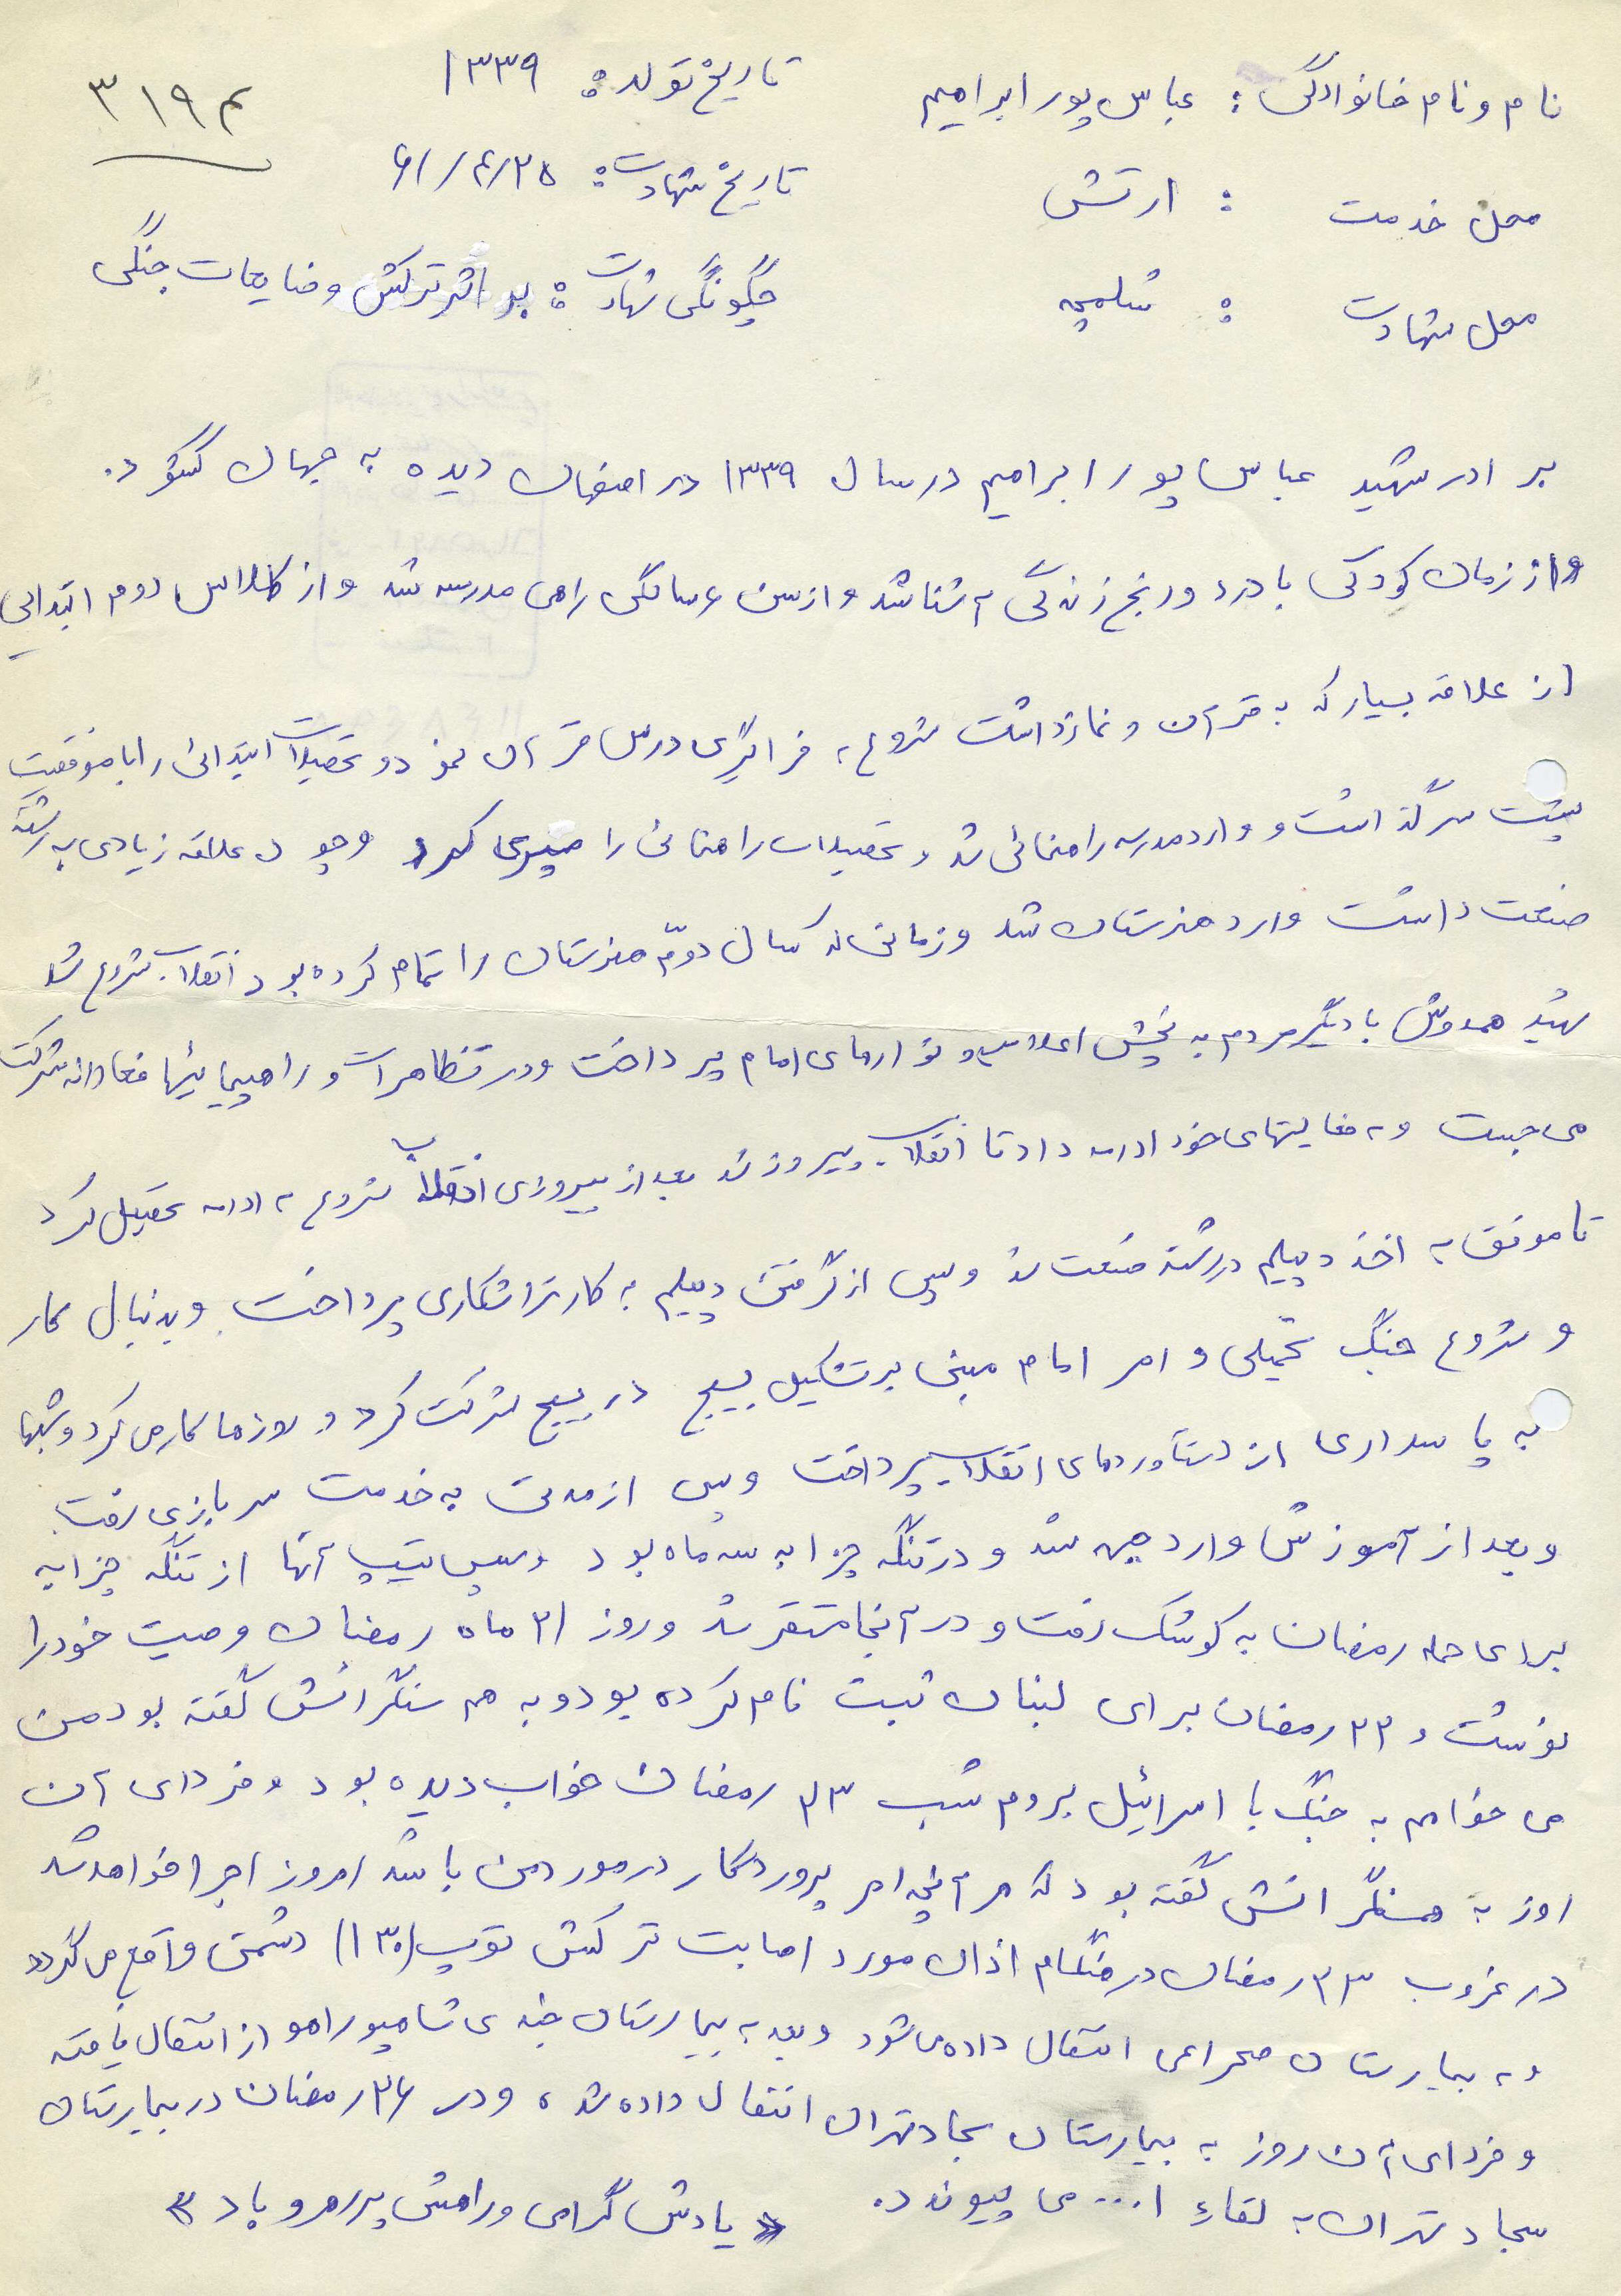 نام و نام خانوادگی : عباس پور ابراهیم
تاریخ تولد : ۱۳۳۹
۳۱۹۴
محل خدمت : ارتش
تاریخ شهادت : ۶۱/۴/۲۵
محل شهادت : شلمچه
چگونگی شهادت : بر اثر ترکش وضایعات جنگی
برادر شهید عباس پور ابراهیم در سال ۱۳۳۹ در اصفهان دیده به جهان گشود.
واز زمان کودکی با درد ورنج زندگی آشنا شد واز سن ۶ سالگی راهی مدرسه شد واز کلاس دوم ابتدایی
از علاقه بسیار که به قرآن ونماز داشت شروع به فراگیری درس قرآن نمود و تحصیلات ابتدائی را با موفقیت
پشت سر گذاشت و وارد مدرسه راهنمائی شد و تحصیلات راهنمائی را سپری کرد وچون علاقه زیادی به رشته
صنعت داشت وارد هنرستان شد وزمانی که سال دوّم هنرستان را تمام کرده بود انقلاب شروع شد
شهید همدوش با دیگر مردم به پخش اعلامیه و نوارهای امام پرداخت ودر تظاهرات و راهپیمائیها فعالانه شرکت
می جست وبه فعالیتهای خود ادامه داد تا انقلاب پیروز شد بعد از پیروزی انقلاب شروع به ادامه تحصیل کرد
تا موفق به اخذ دیپلم در رشته صنعت شد وپس از گرفتن دیپلم به کار تراشکاری پرداخت وبدنبال کار
و شروع جنگ تحمیلی و امر امام مبنی بر تشکیل بسیج در بسیج شرکت کرد و روزها کار می کرد وشبها
به پاسداری از دستاوردهای انقلاب پرداخت وپس از مدتی به خدمت سربازی رفت
وبعد از آموزش وارد جبهه شد و در تنگه چزابه سه ماه بود وسپس تیپ آنها از تنگه چزابه
برای حمله رمضان به کوشک رفت و در آنجا مستقر شد وروز ۲۱ ماه رمضان وصیت خود را
نوشت و ۲۲ رمضان برای لبنان ثبت نام کرده بود و به هم سنگرانش گفته بود من
می خواهم به جنگ با اسرائیل بروم شب ۲۳ رمضان خواب دیده بود وفردای آن
روز به همسنگرانش گفته بود که هر آنچه امر پروردگار در مورد من باشد امروز اجرا خواهد شد
در غروب ۲۳ رمضان در هنگام اذان مورد اصابت ترکش توپ (۱۳۰) دشمن واقع می گردد
وبه بیمارستان صحرایی انتقال داده می شود وبعد به بیمارستان جندی شاپور اهواز انتقال یافته
وفردای آن روز به بیمارستان سجاد تهران انتقال داده شد ، ودر ۲۶ رمضان در بیمارستان
سجاد تهران به لقاء ا... می پیوندد.
« یادش گرامی و راهش پررهرو باد »